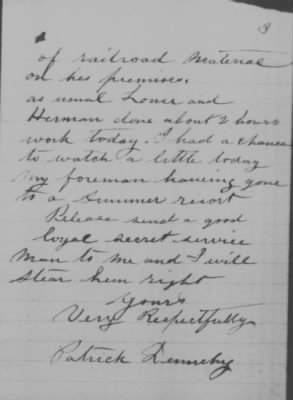 3
of railroad Material
on hes premises.
as usual Louie and
Herman done about 2 hours
work today. I had a chance
to watch a little today
my foreman haveing gone
to a Summer resort
Please send a good
loyal secret service
Man to me and I will
stear him right
Yours
Very Respectfully
Patrick Dennehy